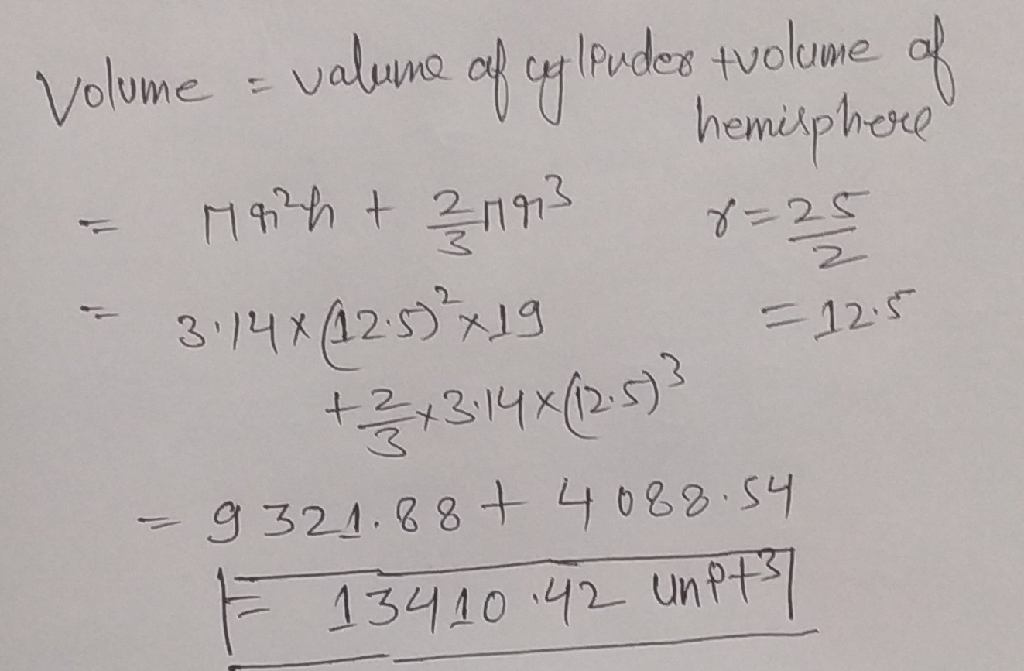 Volume = valume of cylinder + volume of
hemisphere
= πr²h + 2/3 πr³ r = 25/2
= 3.14 x (12.5)² x 19 = 12.5
+ 2/3 x 3.14 x (12.5)³
= 9321.88 + 4088.54
= 13410.42 unit³